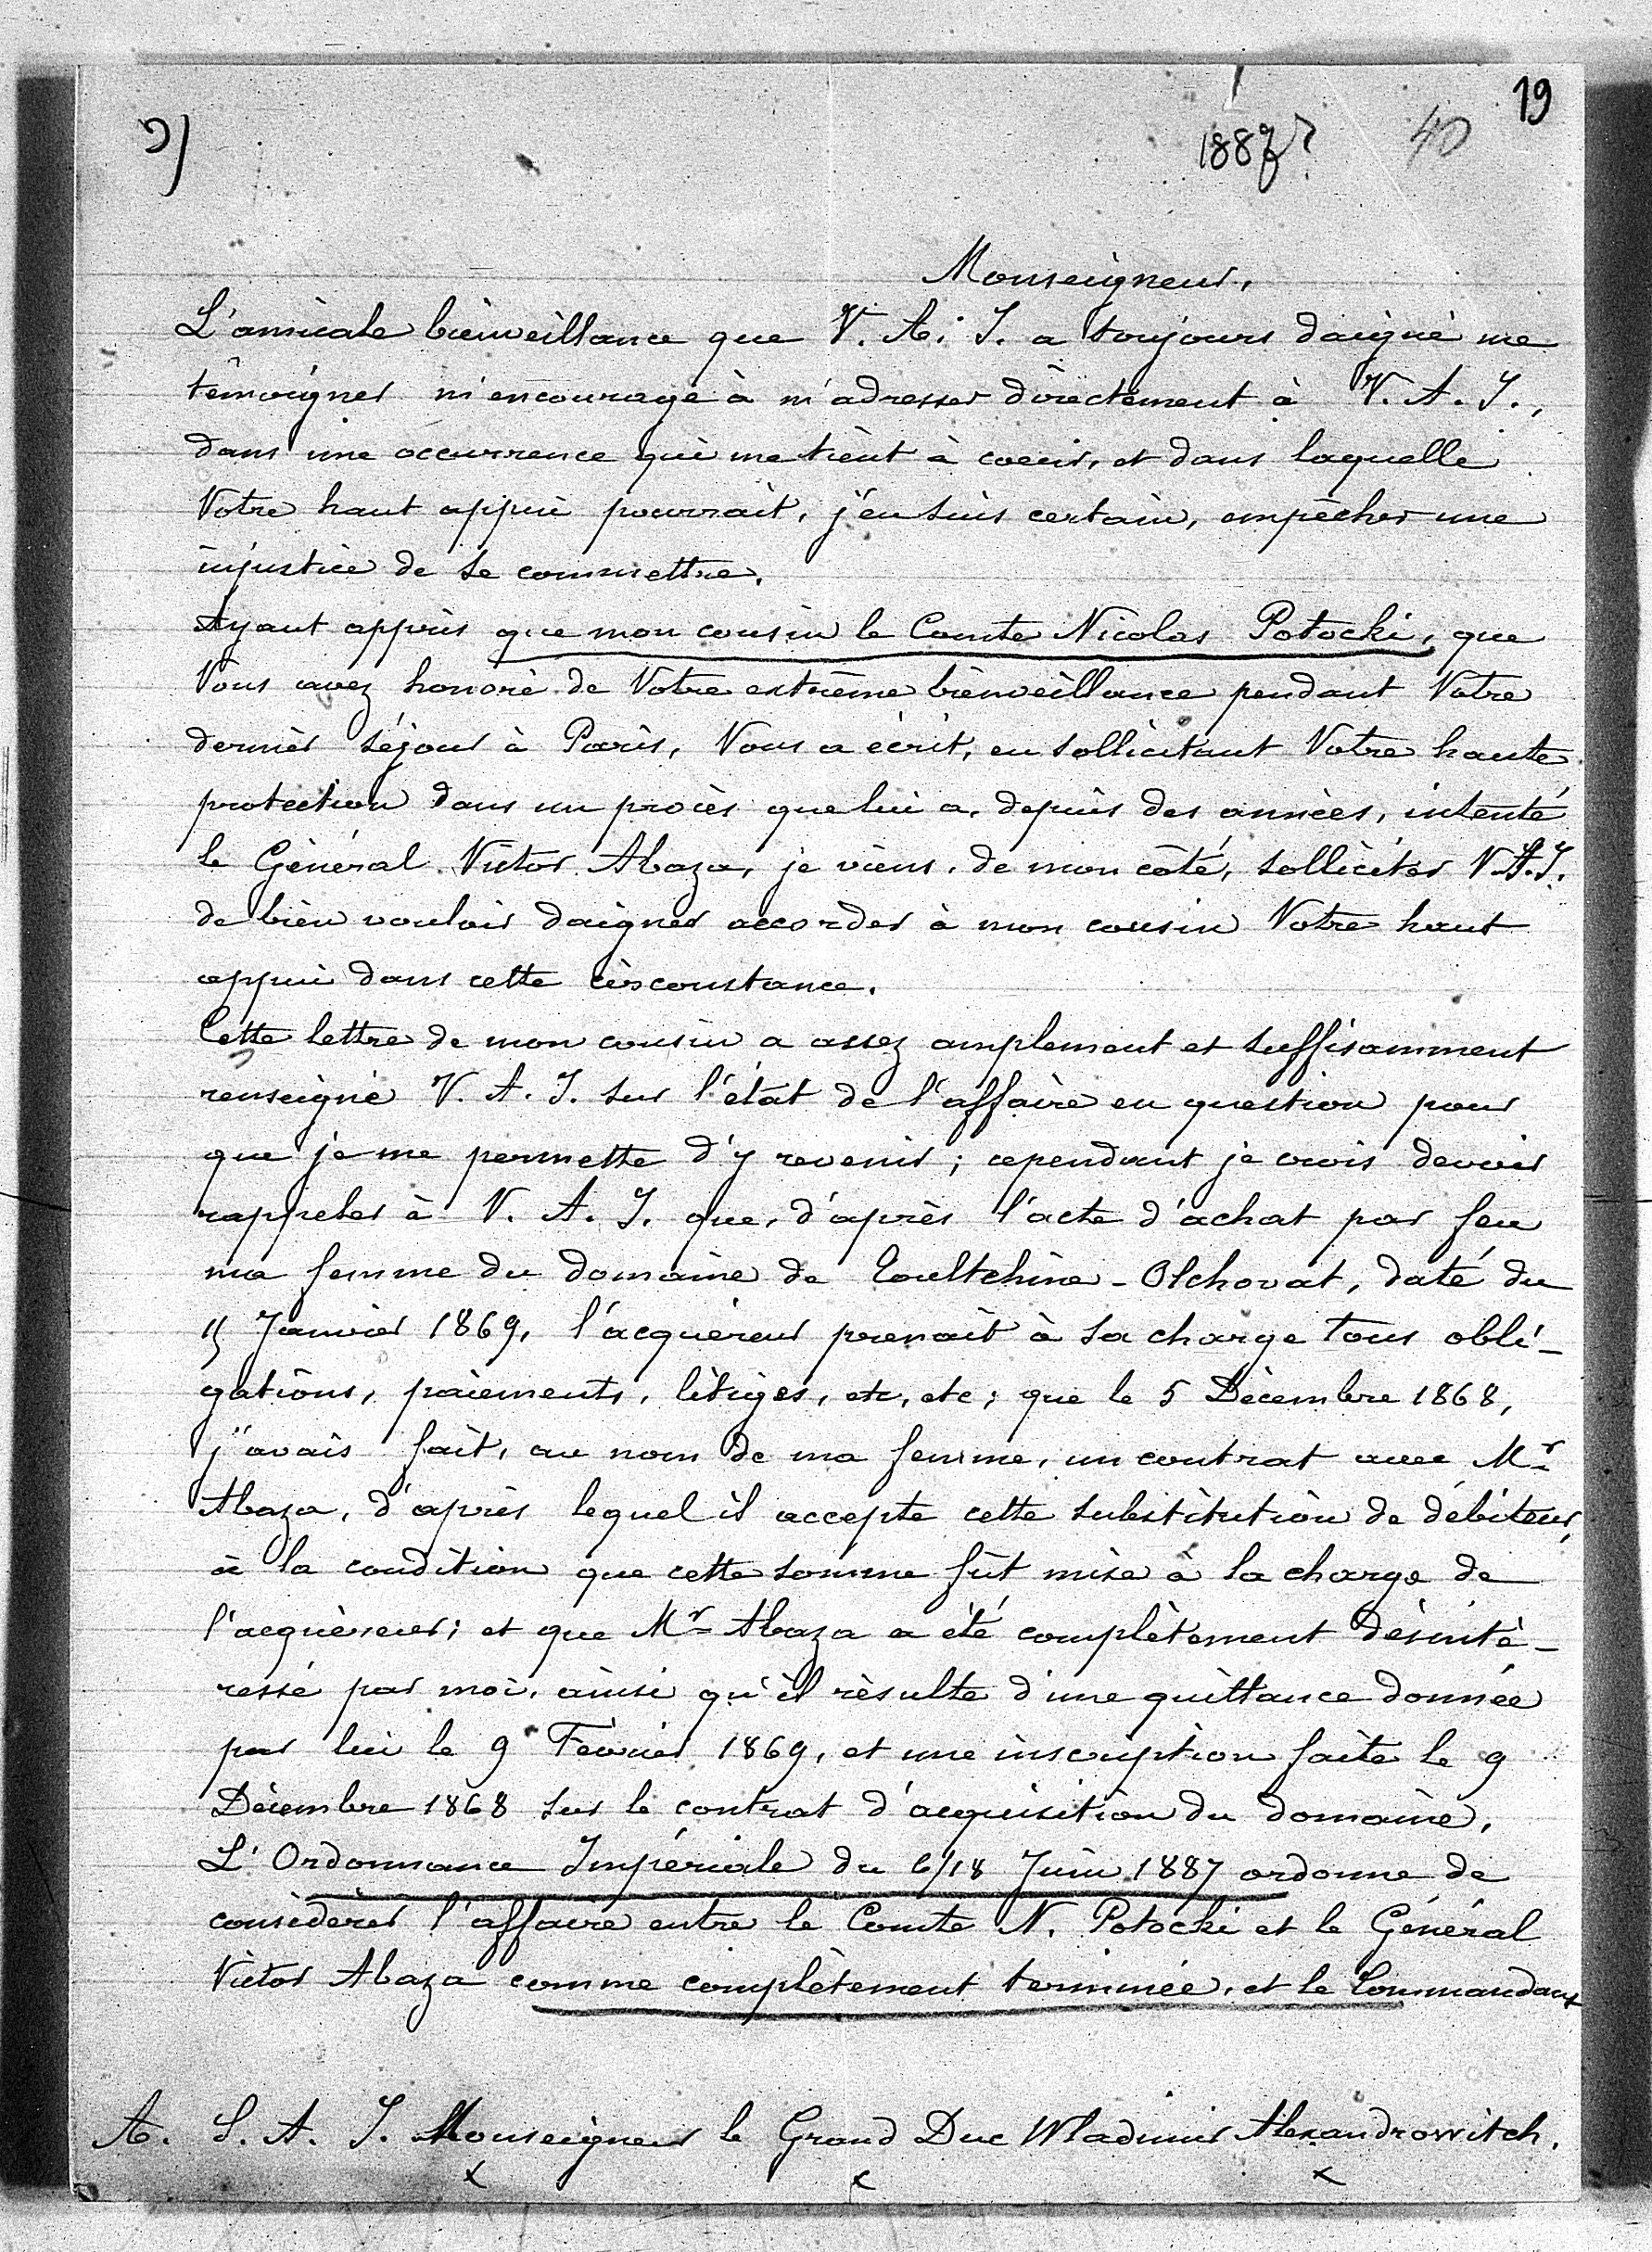 19
1887?
40
Monseigneur,
L'amicale bienveillance que V. A. I. a toujours daigné me
témoigner m'encourage à m'adresser directement à V. A. I.,
dans une occurrence qui me tient à coeur, et dans laquelle
Votre haut appui pourrait, j'en suis certain, empêcher une
injustice de se commettre.
Ayant appris que mon cousin le Comte Nicolas Potocki, que
Vous avez honoré de Votre extrême bienveillance pendant Votre
dernier séjour à Paris, Vous a écrit, en sollicitant Votre haute
protection dans un procès que lui a, depuis des années, intenté
le Général Victor Abaza, je viens, de mon côté, solliciter V. A. I.
de bien vouloir daigner accorder à mon cousin Votre haut
appui dans cette circonstance.
Cette lettre de mon cousin a assez amplement et suffisamment
renseigné V. A. I. sur l'état de l'affaire en question pour
que je me permette d'y revenir; cependant je crois devoir
rappeler à V. A. I. que, d'après l'acte d'achat par feu
ma femme du domaine de Toultchine-Olchovat, daté du
15 Janvier 1869, l'acquéreur prenait à sa charge tous obli-
gations, paiements, litiges, etc, etc; que le 5 Décembre 1868,
j'avais fait, au nom de ma femme, un contrat avec Mr
Abaza, d'après lequel il accepte cette substitution de débiteur,
à la condition que cette somme fût mise à la charge de
l'acquéreur; et que Mr Abaza a été complètement désinté-
ressé par moi, ainsi qu'il résulte d'une quittance donnée
par lui le 9 Février 1869, et une inscription faite le 9
Décembre 1868 sur le contrat d'acquisition du domaine.
L'Ordonnance Impériale du 6/18 Juin 1887 ordonne de
considérer l'affaire entre le Comte N. Potocki et le Général
Victor Abaza comme complètement terminée, et le Commandant
A. S. A. I. Monseigneur le Grand Duc Wladimir Alexandrowitch.
x x x